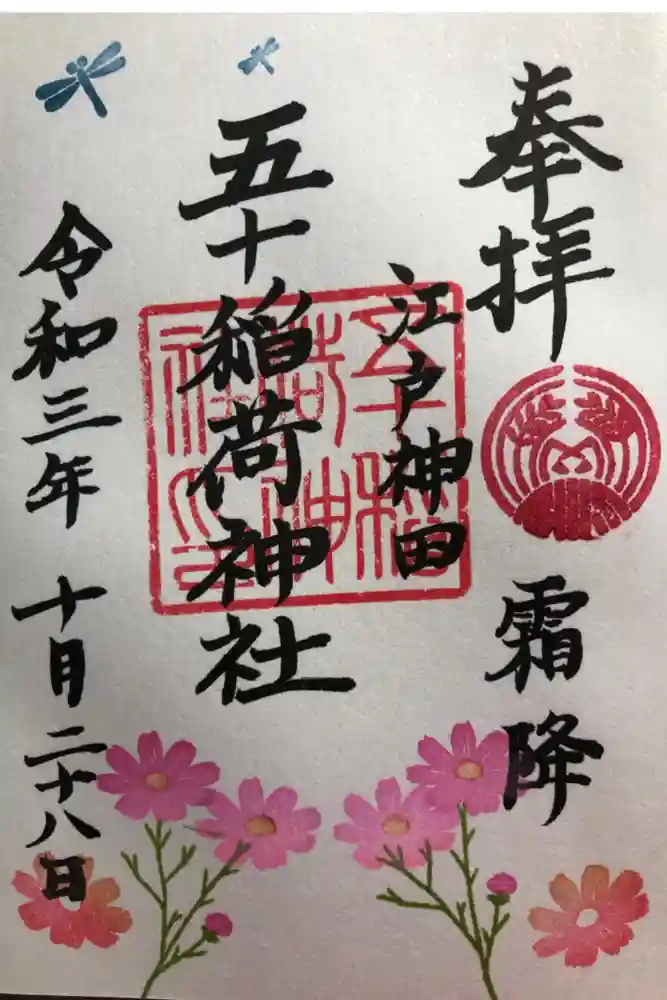 奉拝
霜降
江戸神田
五十稲荷神社
令和三年 十月二十八日
五十稲
荷神
社之印